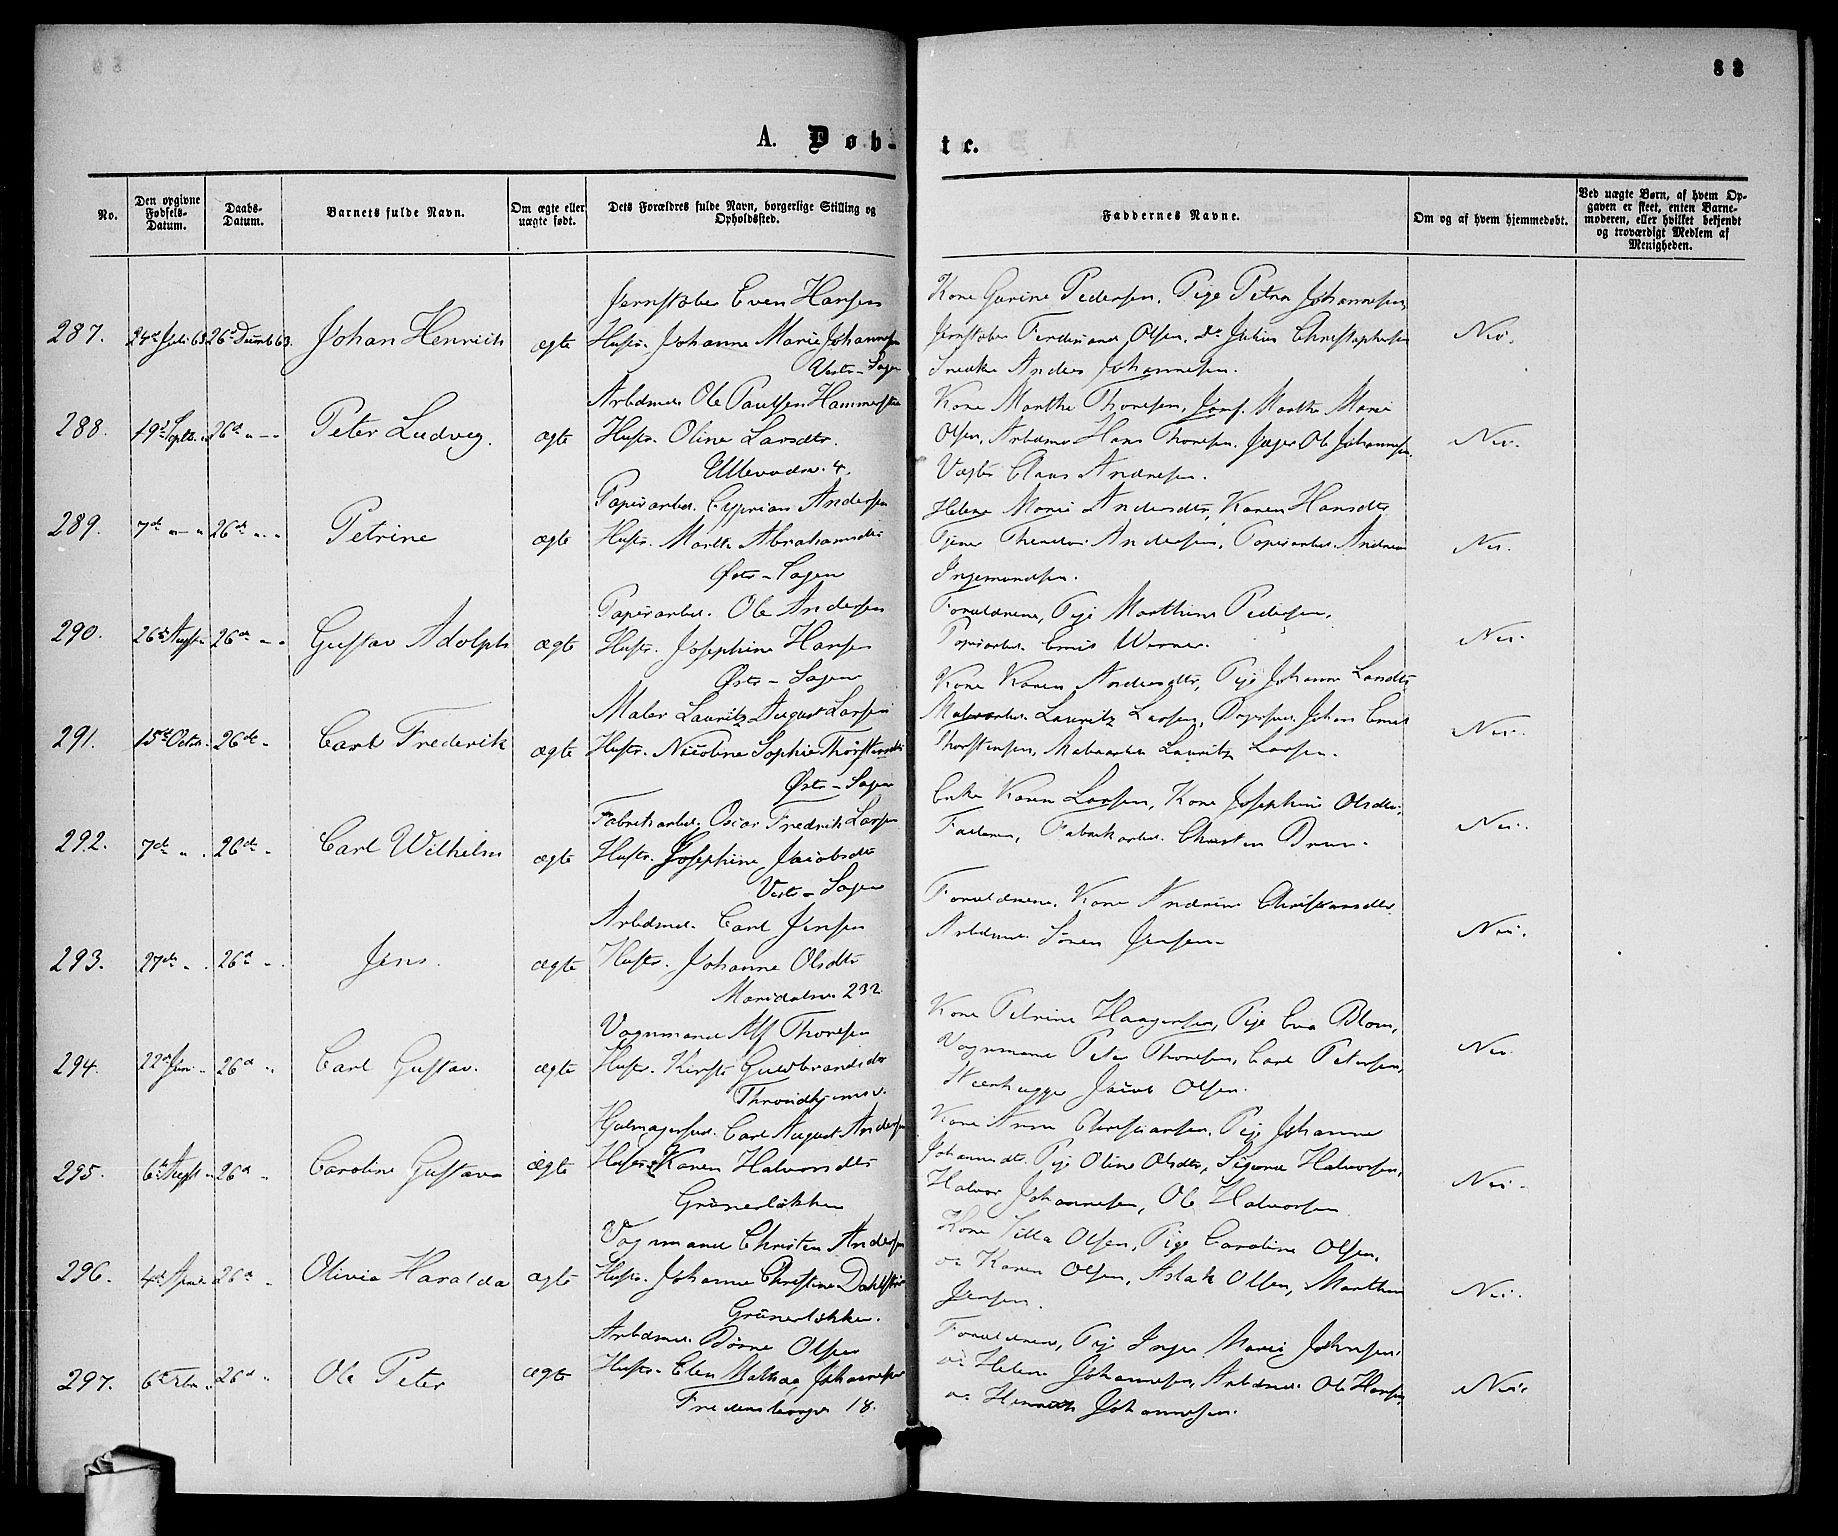 88
A. Døb-
te.
No.
Den opgivne Fødsels-Datum.
Daabs-Datum.
Barnets fulde Navn.
Om ægte eller uægte født.
Dets Forældres fulde Navn, borgerlige Stilling og Opholdssted.
Faddernes Navne.
Om og af hvem hjemmedøbt.
Ved uægte Børn, af hvem Opgaven er skeet, enten Barnemoderen, eller hvilket bekjendt og troværdigt Medlem af Menigheden.
287.
Johan Henrich
ægte
Jernstøber Even Hansen
Hustr. Johanne Marie Johannesen
Vestr-Sagen
Kone Gurine Pedersen, Pige Petra Johannesen,
Jernstøber Ferdinand Olsen, do Julius Christophersen
Snedker Anders Johannesen.
Nei.
288.
19d Septb.
26de
Peter Ludvig.
ægte
Arbdsmd. Ole Paulsen
Hustr. Oline Larsdtr.
Ullevodsv. 4.
Kone Marthe Thoresen, Jomf. Marthe Marie
Olsen, Arbdsmd Hans Thoresen, Jæger Ole Johannesen,
Vægter Claus Andresen.
Nei.
289.
7de
26de
Petrine
ægte
Papirarbd. Cyprian Andersen
Hustr. Marthe Abrahamsdtr
Østr-Sagen
Helene Marie Andersdtr, Karen Hansdtr
Tjener Theodor Andersen, Papirarbd. Andreas
Ingemundsen.
Nei.
290.
26de Augst
26de
Gustav Adolph
ægte
Papirarbd. Ole Andersen
Hustr. Josephine Hansen
Østr-Sagen
Forældrene, Pige Marthine Pedersen,
Papirarbd. Emil Werner.
Nei.
291.
15de Octbr.
26de
Carl Frederik
ægte
Maler Lauritz August Larsen
Hustr. Nicoline Sophie Thorstensdtr
Østr-Sagen
Kone Karen Andersdtr, Pige Johanne Larsdtr,
Lauritz Larsen, Johan Emil
Thorstensen, Lauritz Larsen.
Nei.
292.
7de
26de
Carl Wilhelm
ægte
Fabrikarbd. Oscar Fredrik Larsen
Hustr. Josephine Jacobsdtr
Vestr-Sagen
Enke Karen Larsen, Kone Josephine Olsdtr,
Faderen, Fabrikarbd. Christen Bruun.
Nei.
293.
27de
26d
Jens.
ægte
Arbdsmd. Carl Jensen
Hustr. Johanne Olsdtr
Maridalsv. 232
Forældrene, Kone Andrine Christiansdtr
Arbdsmd. Søren Jensen.
Nei.
294.
26d
Carl Gustav.
ægte
Vognmand Alf Thoresen
Hustr. Kirsti Gulbrandsdtr
Throndhjemsv.
Kone Petrine Haagensen, Pige Eva Blom,
Vognmand Peter Thoresen, Carl Petersen,
Steenhugger Jacob Olsen.
Nei.
295.
6d Augst
26d
Caroline Gustava
ægte
Hjulmagersvd. Carl August Andersen
Hustr. Karen Halvorsdtr
Grünerløkken
Kone Anne Christiansen, Pige Johanne
Johannesdtr, Pige Oline Olsdtr, Sigurd Halvorsen,
Halvor Johannesen, Ole Halvorsen
Nei.
296.
26d
Olivia Haralda
ægte
Vognmand Christen Andersen
Hustr. Johanne Christine
Grünerløkken.
Kone Silla Olsen, Pige Caroline Olsen,
og Karen Olsen, Aslak Olsen, Marthin
Jensen.
Nei.
297.
26d
Ole Peter
ægte
Arbdsmd. Børre Olsen
Hustr. Elen Mathea Johannesen
Fredensborgv 18.
Forældrene, Pige Inger Marie Johnsen,
og Helene Johannesen, Arbdsmd. Ole Hansen,
og Henrich Johannesen.
Nei.